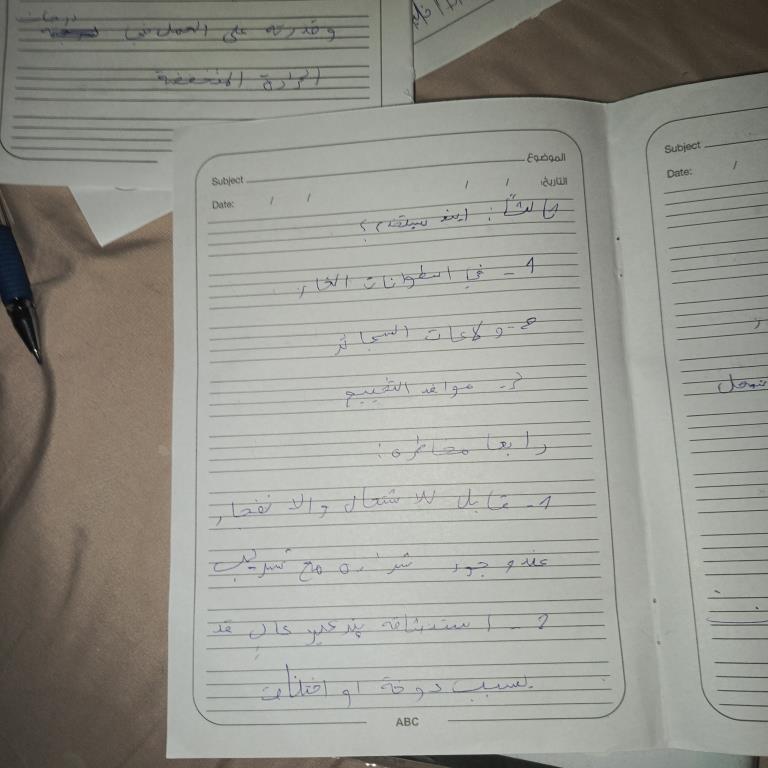 درجات
وقدرته على العمل في
الحرارة المنخفضة
الموضوع
Subject
التاريخ: / /
Date: / /
ثالثاً: اين يستخدم؟
1- في اسطوانات الغاز
2- ولاعات السجائر
3- مواقد التخييم
رابعا مخاطره:
1- قابل للاشتعال والانفجار
عند وجود شراره مع تسريب
2- استنشاقه بتركيز عالٍ قد
يسبب دوخة او اختناق
ABC
Subject
Date: /